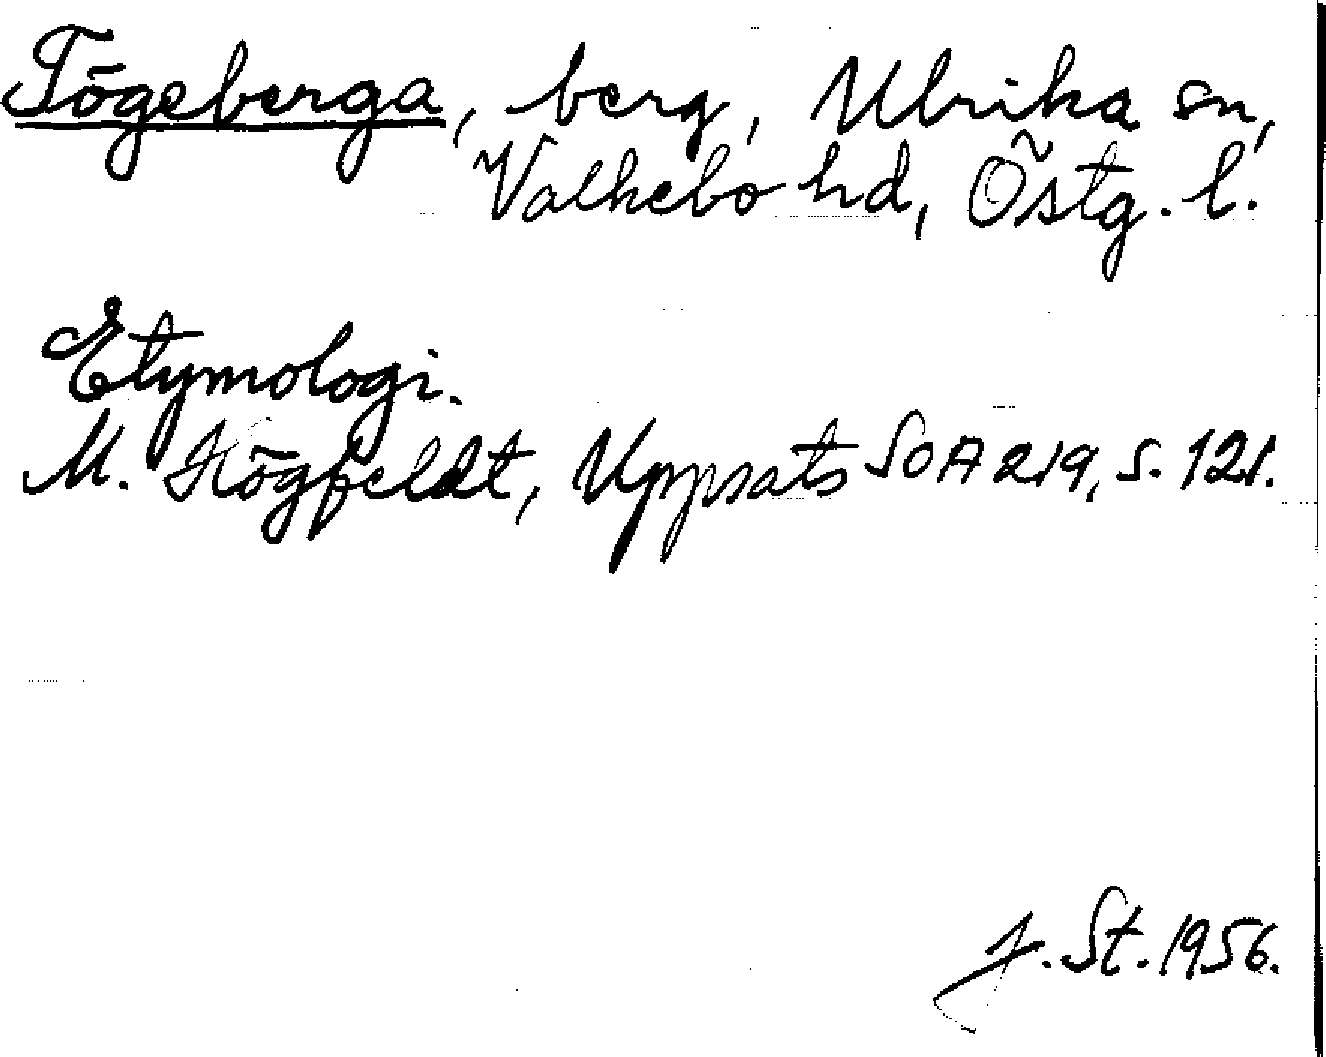 Tögeberga, berg, Ulrika sn,
Valkebo hd, Östg. l.
Etymologi.
M. Högfeldt, Uppsats SOA 219, s. 121.
J. St. 1956.